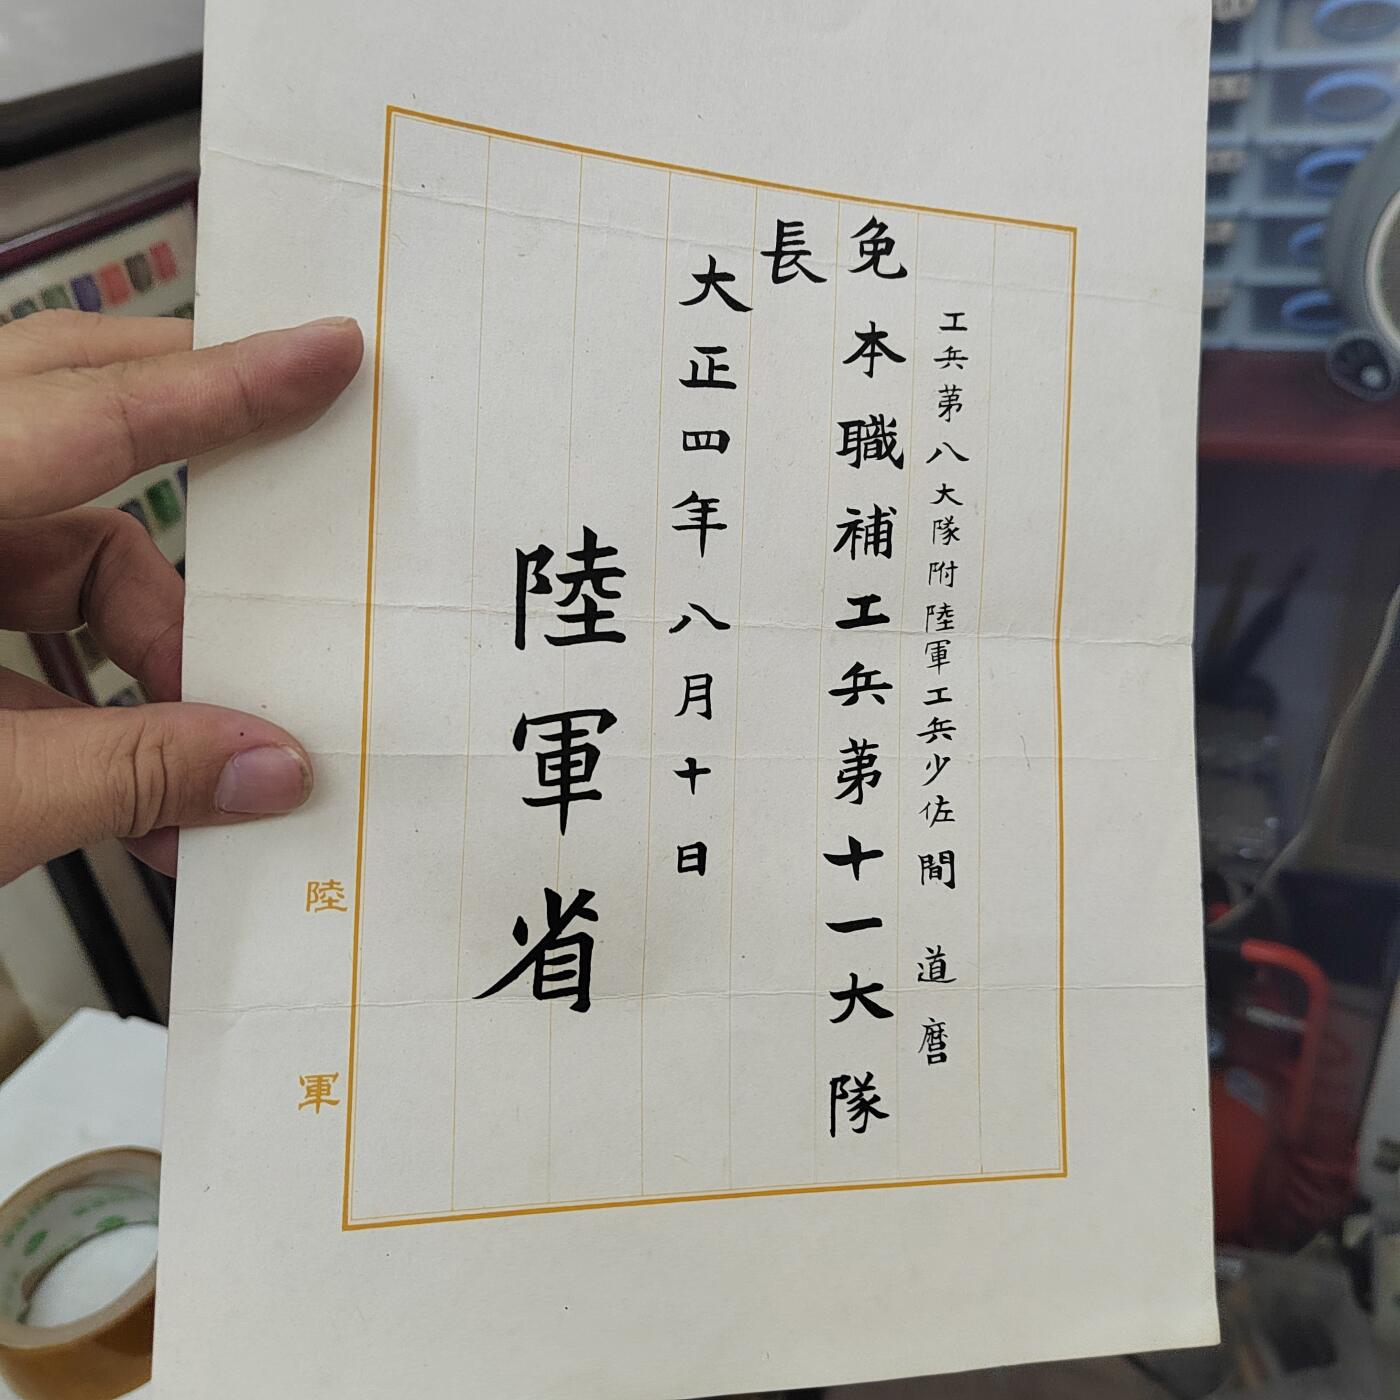 工兵第八大隊附陸軍工兵少佐間 道麿
免本職補工兵第十一大隊
長
大正四年八月十日
陸軍省
陸軍